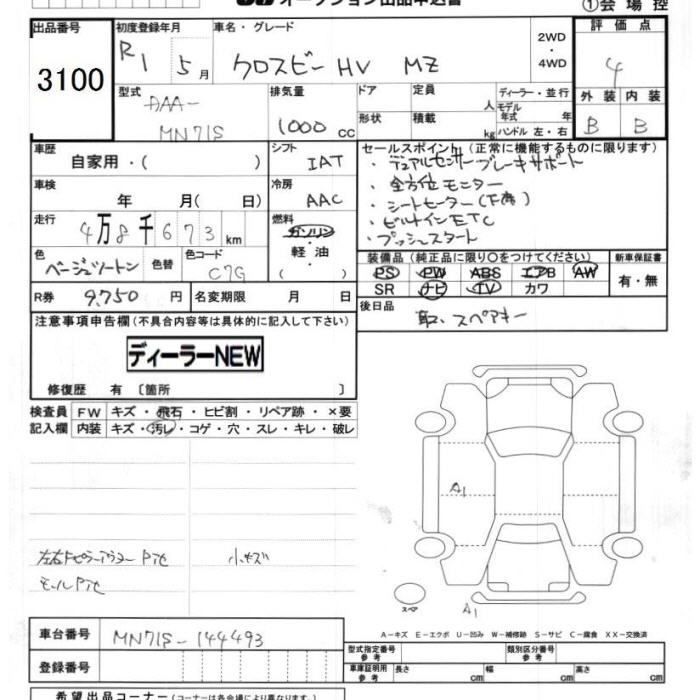 オークション出品申込書
①会場控
出品番号
3100
初度登録年月
R1 5月
車名・グレード
クロスビー HV MZ
2WD
・
4WD
評価点
4
型式
DAA-
MN71S
排気量
1000 cc
ドア
定員
人
形状
積載
kg
ディーラー・並行
モデル年式 年
ハンドル 左・右
外装 内装
B B
車歴
自家用・( )
シフト
IAT
セールスポイント(正常に機能するものに限ります)
・デュアルセンサーブレーキサポート
・全方位モニター
・シートヒーター(F席)
・ビルトインETC
・プッシュスタート
車検
年 月( 日)
冷房
AAC
走行
4万8千673km
燃料
ガソリン
・
軽油
( )
色
ベージュツートン
色替
色コード
C7G
装備品(純正品に限り○をつけてください)
新車保証書
PS PW ABS エアB AW
SR ナビ TV カワ
有・無
R券 9,750円
名変期限 月 日
後日品
取、スペアキー
注意事項申告欄(不具合内容等は具体的に記入して下さい)
ディーラーNEW
修復歴 有 〔箇所 〕
検査員 FW キズ・飛石・ヒビ割・リペア跡・×要
記入欄 内装 キズ・汚レ・コゲ・穴・スレ・キレ・破レ
A1
左右Fピラーアウター Pデキ
小キズ
モール Pデキ
スペア
A1
A-キズ E-エクボ U-凹み W-補修跡 S-サビ C-腐食 XX-交換済
車台番号 MN71S-144493
登録番号
型式指定番号
参考
類別区分番号
参考
車庫証明用
参考
長さ cm 幅 cm 高さ cm
希望出品コーナー(コーナーは各会場により異なります。)